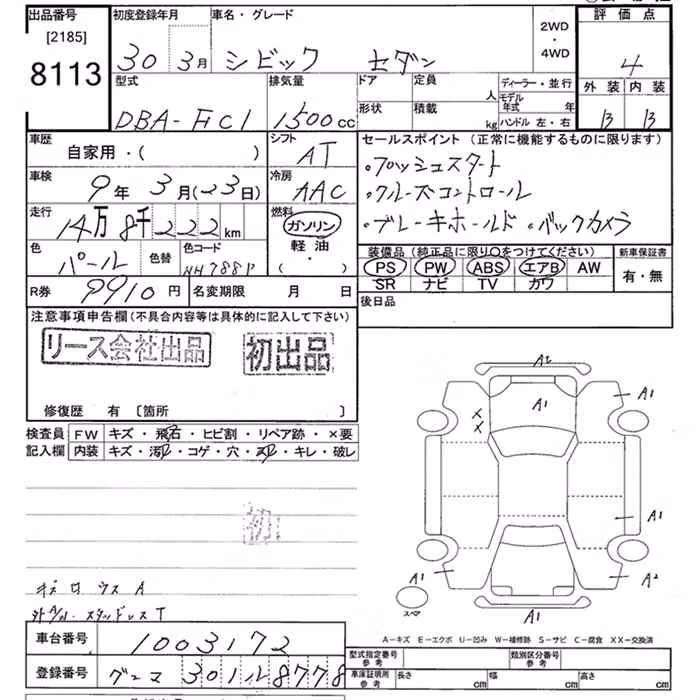 出品番号
[2185]
8113
初度登録年月
30年3月
車名・グレード
シビック セダン
2WD
・
4WD
評価点
4
外装 内装
B B
型式
DBA-FC1
排気量
1500cc
ドア
形状
定員
人
積載
kg
ディーラー・並行
モデル年式 年
ハンドル 左・右
車歴
自家用・( )
シフト
AT
セールスポイント (正常に機能するものに限ります)
・プッシュスタート
・クルーズコントロール
・ブレーキホールド ・バックカメラ
車検
9年3月(23日)
冷房
AAC
走行
14万8千222km
燃料
ガソリン
軽油
( ・ )
色
パール
色替
色コード
NH788P
装備品 (純正品に限り○をつけてください)
PS PW ABS エアB AW
SR ナビ TV カワ
新車保証書
有・無
R券 9910円
名変期限 月 日
後日品
注意事項申告欄(不具合内容等は具体的に記入して下さい)
リース会社出品
初出品
修復歴 有 [箇所 ]
検査員
記入欄
FW キズ・飛石・ヒビ割・リペア跡・×要
内装 キズ・汚れ・コゲ・穴・スレ・キレ・破レ
初
キズ ロ ウス A
外A/W・スタッドレス T
A2
A1
A1
X
X
A1
A1
A2
A1
スペア
A1
A-キズ E-エクボ U-凹み W-補修跡 S-サビ C-腐食 XX-交換済
車台番号 1003172
登録番号 グンマ 301 ル 8778
型式指定番号
参考
類別区分番号
参考
車庫証明用
参考
長さ cm
幅 cm
高さ cm